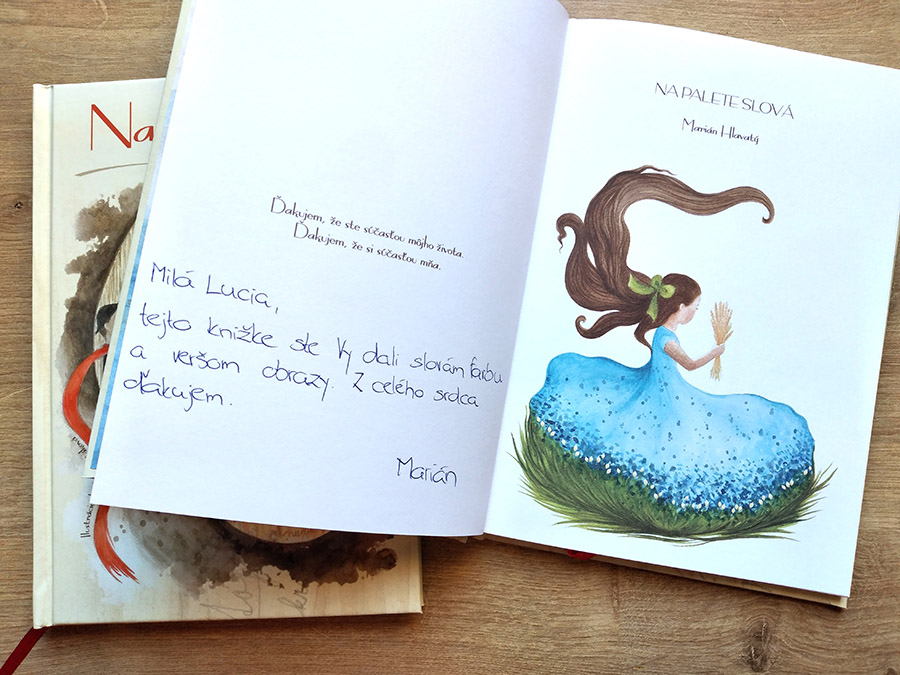 Na
Ďakujem, že ste súčasťou môjho života.
Ďakujem, že si súčasťou mňa.
Milá Lucia,
tejto knižke ste Vy dali slovám farbu
a veršom obrazy. Z celého srdca
ďakujem.
Marián
NA PALETE SLOVÁ
Marián Hlavatý